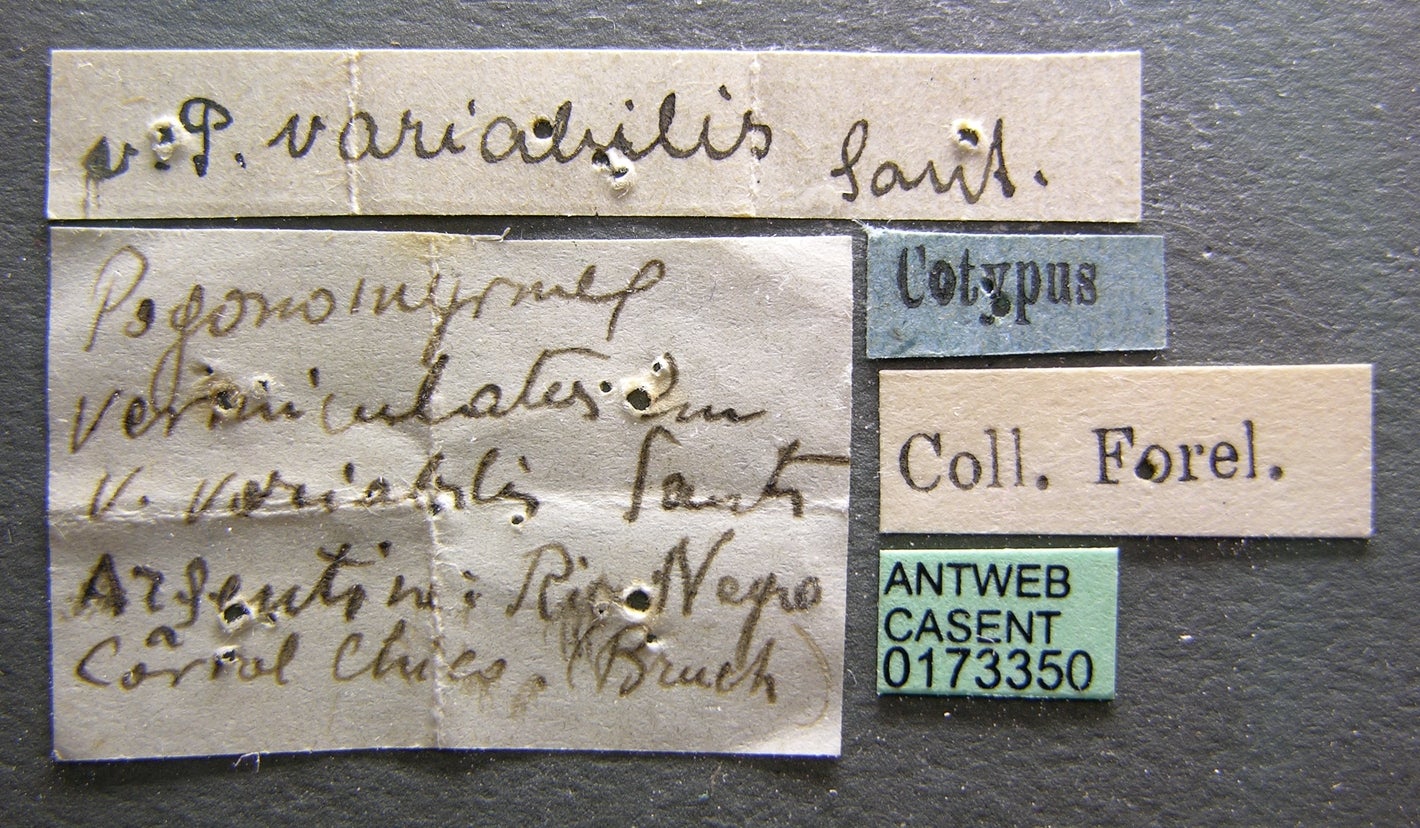 v. P. variabilis Sant.
Pogonomyrmex
vermiculatus Em
v. variabilis Sants
Argentin: Rio Negro
Corral Chico. (Bruch)
Cotypus
Coll. Forel.
ANTWEB
CASENT
0173350